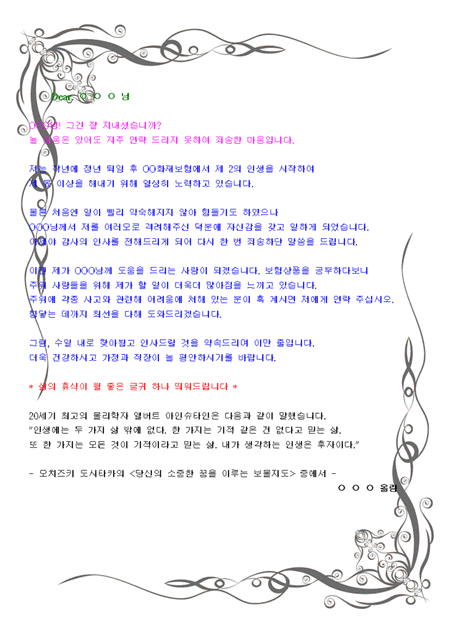 Dear. ㅇ ㅇ ㅇ 님
OOO님! 그간 잘 지내셨습니까?
늘 마음은 있어도 자주 연락 드리지 못하여 죄송한 마음입니다.
저는 작년에 정년 퇴임 후 OO화재보험에서 제 2의 인생을 시작하여
제 몫 이상을 해내기 위해 열심히 노력하고 있습니다.
물론 처음엔 일이 빨리 익숙해지지 않아 힘들기도 하였으나
OOO님께서 저를 여러모로 격려해주신 덕분에 자신감을 갖고 일하게 되었습니다.
이제야 감사의 인사를 전해드리게 되어 다시 한 번 죄송하단 말씀을 드립니다.
이젠 제가 OOO님께 도움을 드리는 사람이 되겠습니다. 보험상품을 공부하다보니
주위 사람들을 위해 제가 할 일이 더욱더 많아짐을 느끼고 있습니다.
주위에 각종 사고와 관련해 어려움에 처해 있는 분이 혹 계시면 저에게 연락 주십시오.
힘닿는 데까지 최선을 다해 도와드리겠습니다.
그럼, 수일 내로 찾아뵙고 인사드릴 것을 약속드리며 이만 줄입니다.
더욱 건강하시고 가정과 직장이 늘 평안하시기를 바랍니다.
* 삶의 휴식이 될 좋은 글귀 하나 띄워드립니다 *
20세기 최고의 물리학자 앨버트 아인슈타인은 다음과 같이 말했습니다.
“인생에는 두 가지 삶 밖에 없다. 한 가지는 기적 같은 건 없다고 믿는 삶.
또 한 가지는 모든 것이 기적이라고 믿는 삶. 내가 생각하는 인생은 후자이다.”
- 모치즈키 도시타카의 <당신의 소중한 꿈을 이루는 보물지도> 중에서 -
ㅇ ㅇ ㅇ 올림